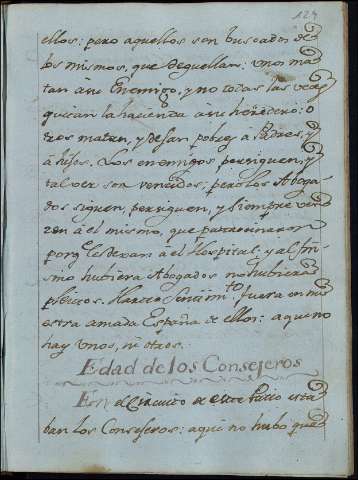 124
ellos: pero aquellos son buscados de
los mismos, que deguellan: unos ma
tan à su Enemigo, y no todas las veces
quitan la hacienda à su heredero: o
tros matan, y dejan pobres à Padres, y
à hijos. Los enemigos persiguen, y
tal vez son vencidos; pero los Aboga
dos siguen, persiguen, y siempre ven
zen à el mismo, que patrocinaron
porq le dexan à el Hospital: y al fin
si no hubiera Abogados no hubiera
pleitos. fuera en nu
estra amada España de ellos: aqui no
hay unos, ni otros.
Edad de los Consejeros
En el Circuito de este Patio esta
ban los Consejeros: aqui no hubo que